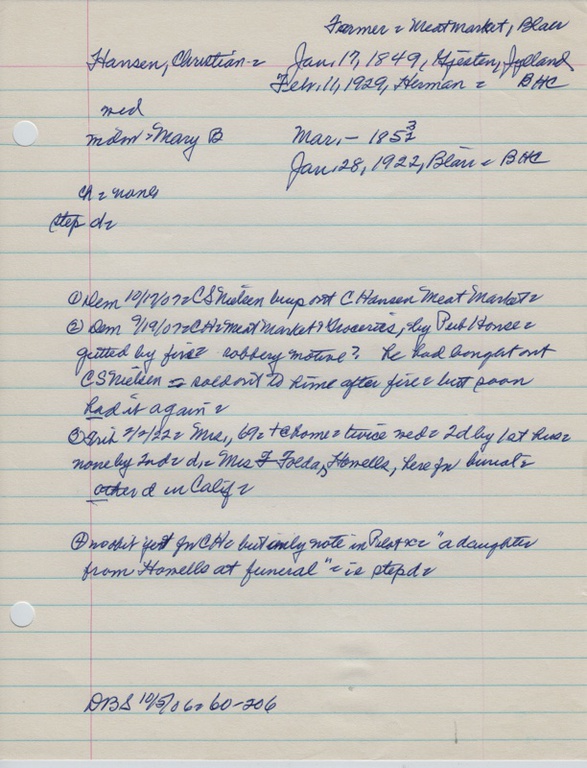 Farmer = Meat market, Blair
Hansen, Christian = Jan. 17, 1849, Jylland
Feb. 11, 1929, Herman = BHC
med
mdm = Mary B Mar. – 1853
Jan. 28, 1922, Blair = BHC
ch = none
step d =
① Dem 10/17/07 = CS Nielsen buys out C Hansen Meat Market =
② Dem 9/19/07 = CH = Meat Market & Groceries, by Pub House =
gutted by fire = robbery motive? he had bought out
CS Nielsen = sold out to him after fire = but soon
had it again =
③ 2/2/22 = Mrs., 69 = home = twice med = 2d by 1st hus =
none by 2nd = d. = Mrs Folda, Howells, here for burial =
other d in Calif =
④ no obit for CH = but only note in Pilot = "a daughter
from Howells at funeral" = is step d =
DBS 10/5/06 = 60-206